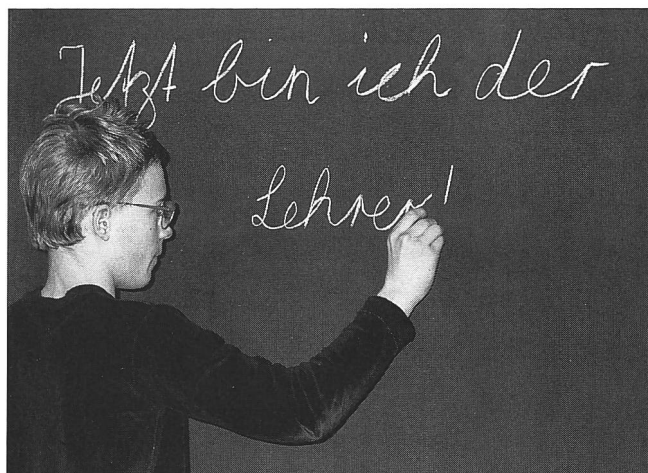 Jetzt bin ich der
Lehrer!